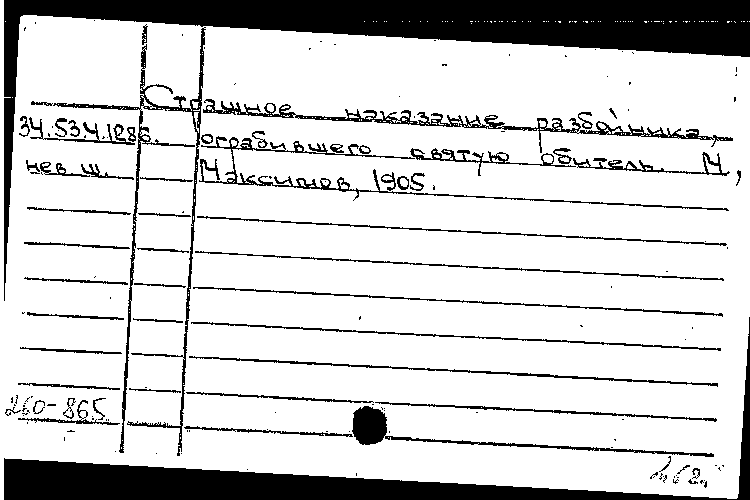 Страшное наказание разбойника,
34.53.4.1286. ограбившего святую обитель. М,
нев. ш. Максимов, 1905.
260-865